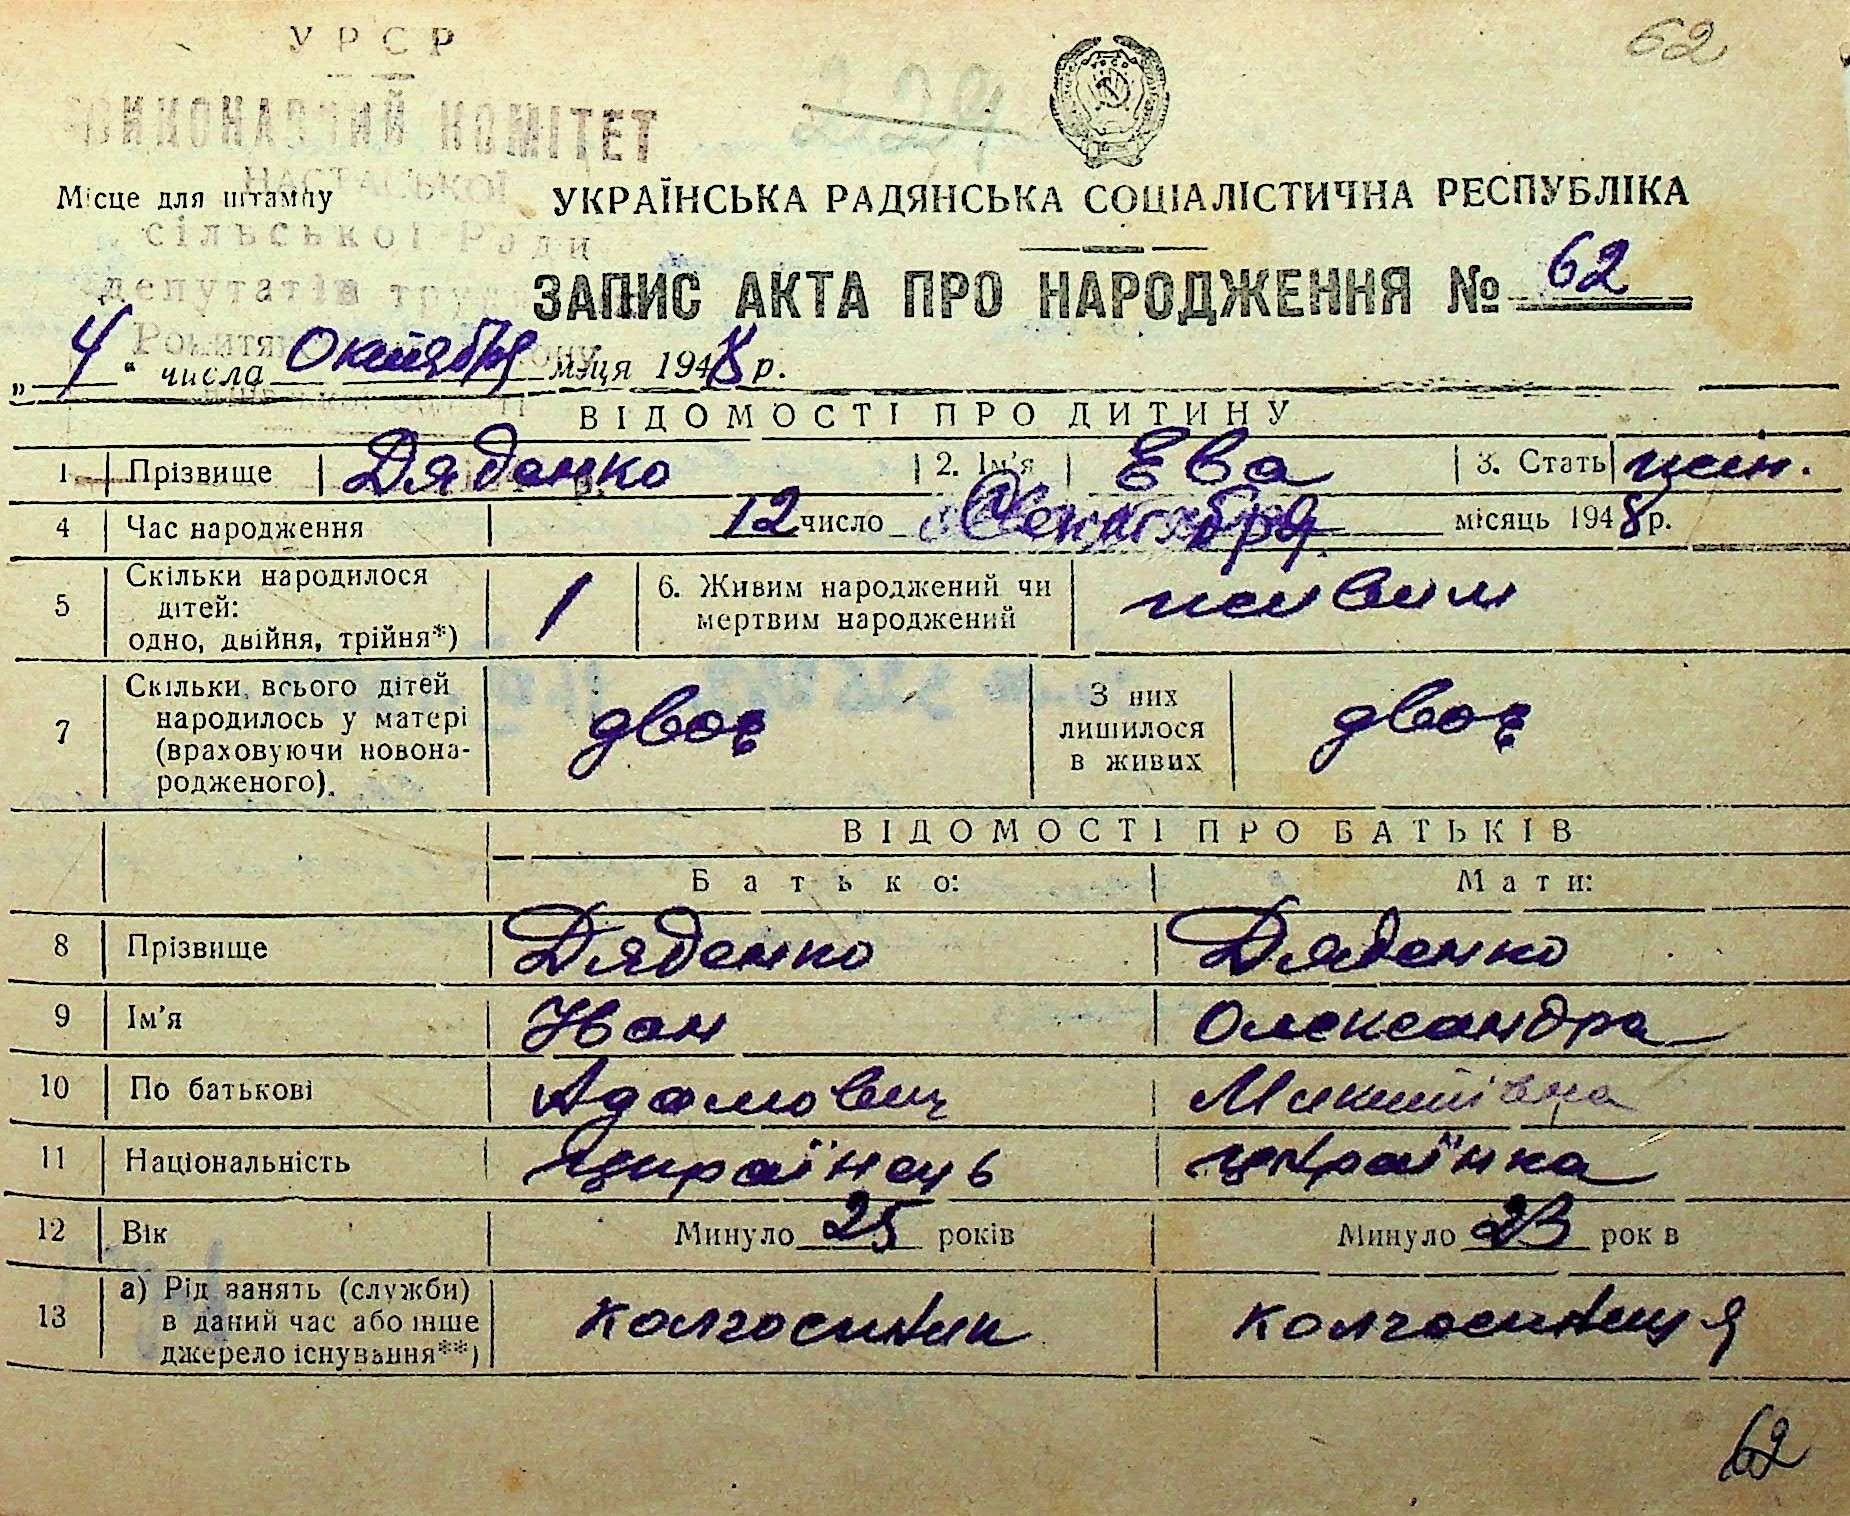 УРСР
62
ВИКОНАВЧИЙ КОМІТЕТ
229
НАСТАСЬКОЇ
Місце для штампу
УКРАЇНСЬКА РАДЯНСЬКА СОЦІАЛІСТИЧНА РЕСПУБЛІКА
сільської Ради
депутатів
ЗАПИС АКТА ПРО НАРОДЖЕННЯ № 62
„4“ числа Октября м-ця 1948 р.
ВІДОМОСТІ ПРО ДИТИНУ
1 Прізвище Дяденко 2. Ім'я Ева 3. Стать жен.
4 Час народження 12 число Сентября місяць 1948 р.
5 Скільки народилося дітей: одно, двійня, трійня*) 1 6. Живим народжений чи мертвим народжений живим
7 Скільки всього дітей народилось у матері (враховуючи новонародженого). двоє З них лишилося в живих двоє
ВІДОМОСТІ ПРО БАТЬКІВ
Батько: Мати:
8 Прізвище Дяденко Дяденко
9 Ім'я Іван Олександра
10 По батькові Адамович Микитівна
11 Національність Українець українка
12 Вік Минуло 25 років Минуло 23 рок в
13 а) Рід занять (служби) в даний час або інше джерело існування**) колгоспник колгоспниця
62